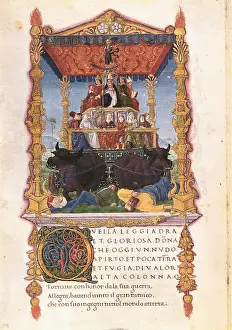 QVELLA LEGGIADRA
ET GLORIOSA DONA
CHE OGGI VNNVDO
SPIRTO ET POCATERA
ET FVGIA DI VALOR
ALTA COLONNA
Tornaua con honor da la sua guerra,
Allegra, hauendo uinto il gran nimico,
che con suo ingegni tutto l mondo atterra.